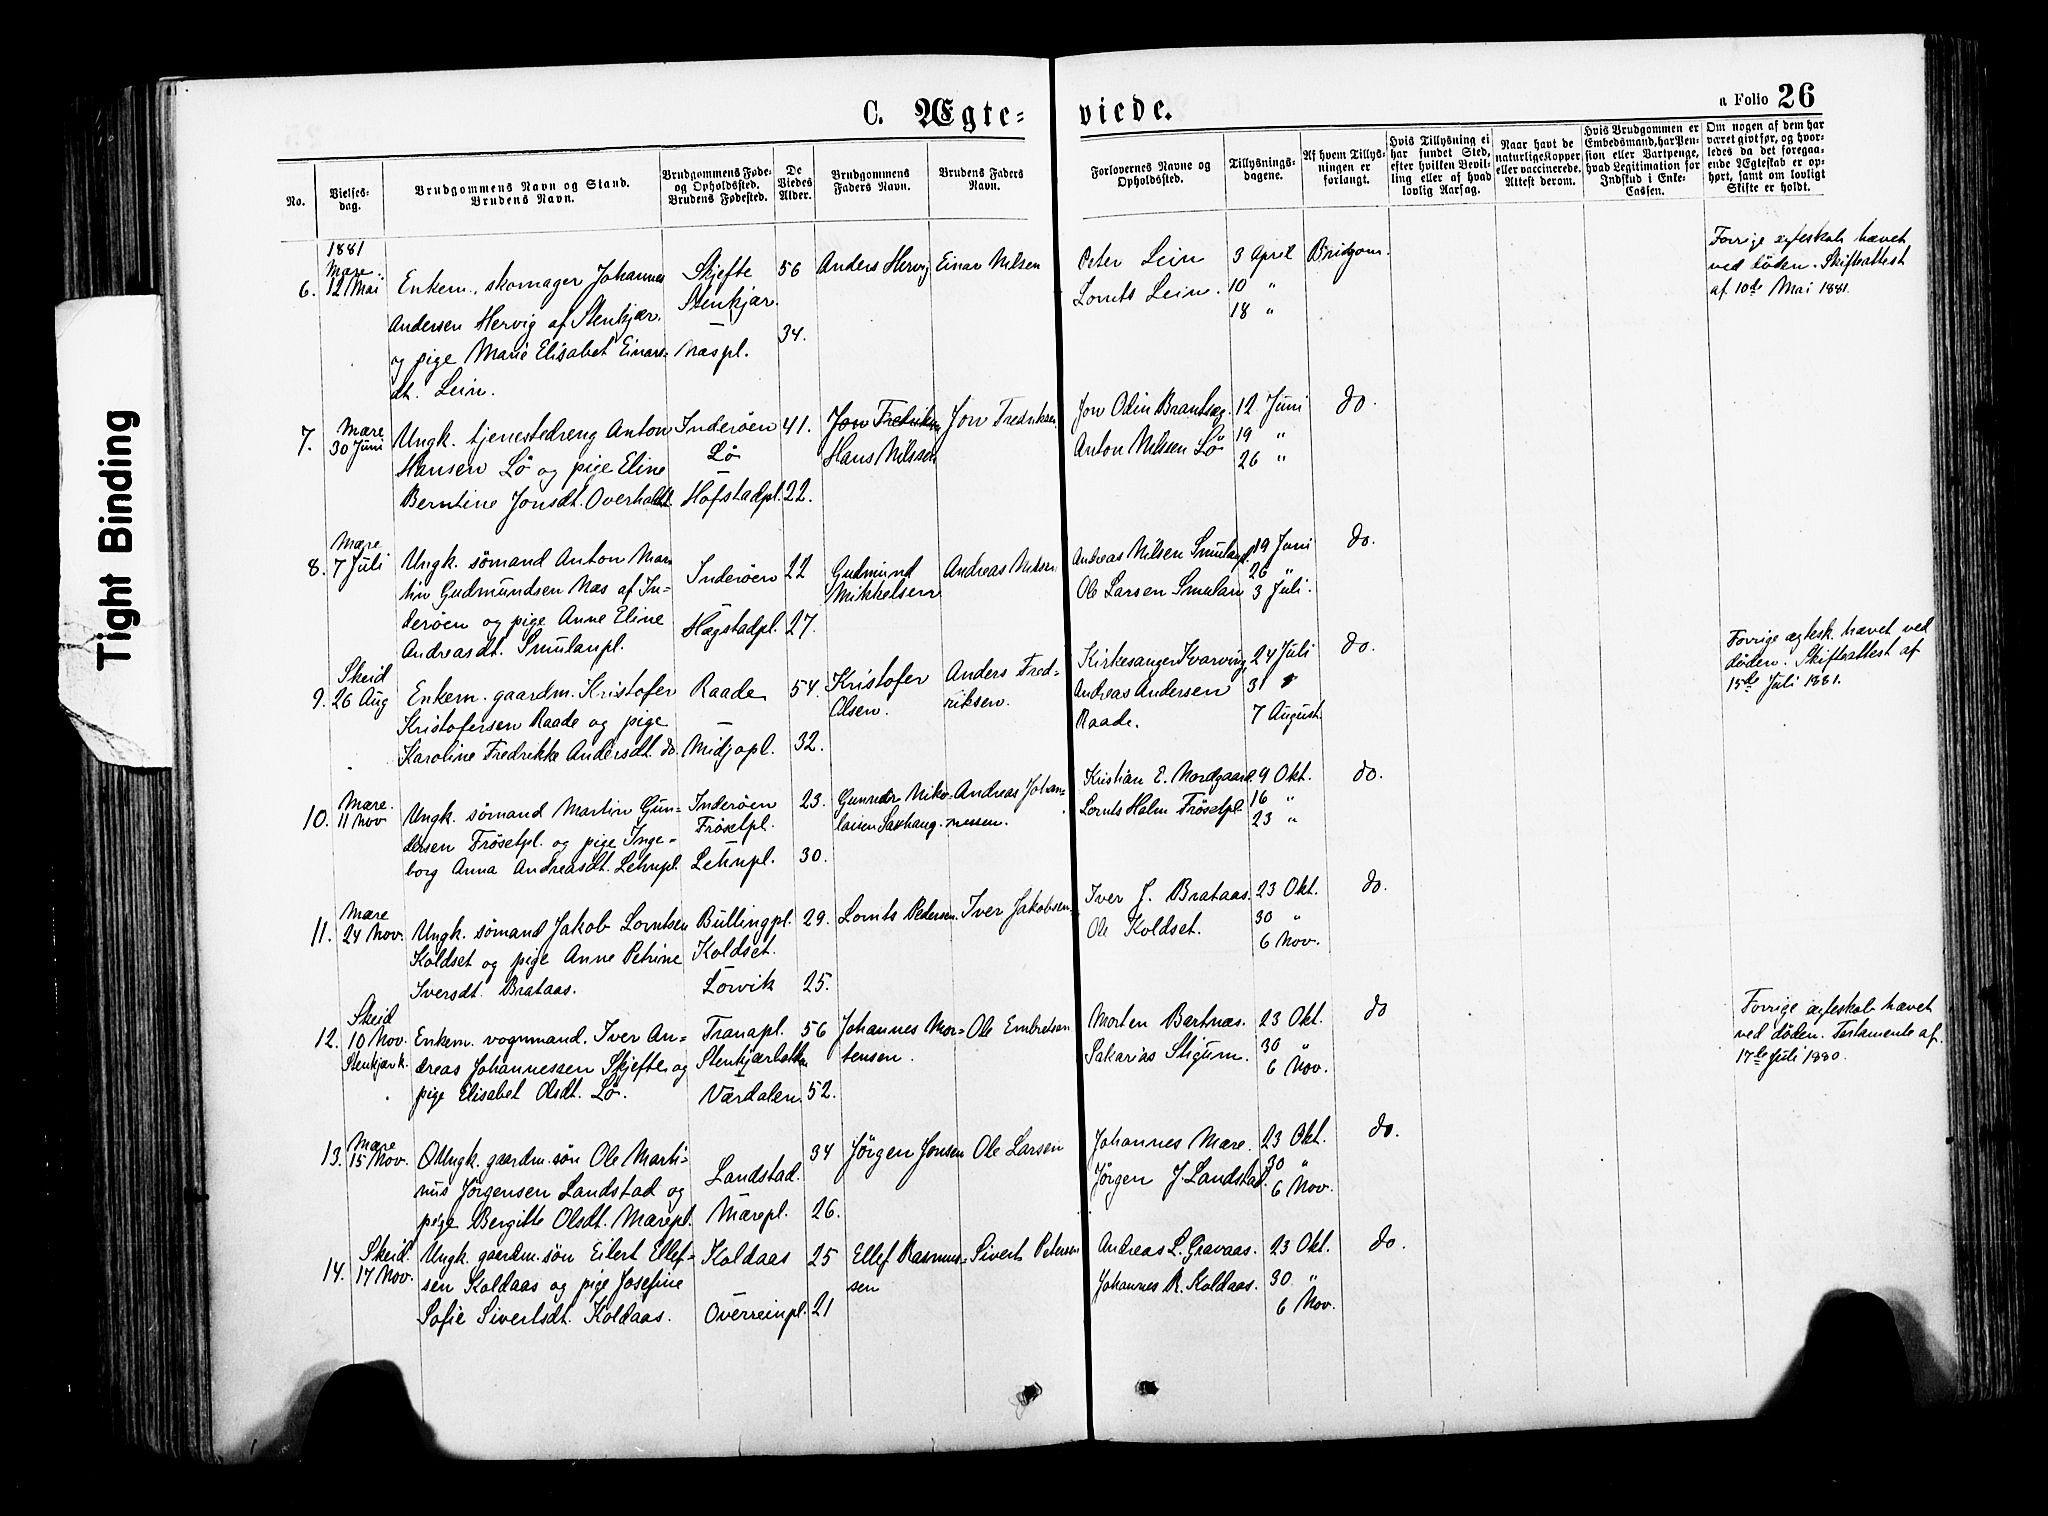 Tight Binding
C. Ægte=
viede.
a Folio 26
No.
Vielses-
dag.
Brudgommens Navn og Stand.
Brudens Navn.
Brudgommens Føde-
og Opholdssted.
Brudens Fødested.
De
Viedes
Alder.
Brudgommens
Faders Navn.
Brudens Faders
Navn.
Forlovernes Navne og
Opholdssted.
Tillysnings-
dagene.
Af hvem Tillys-
ningen er
forlangt.
Hvis Tillysning ei
har fundet Sted,
efter hvilken Bevil-
ling eller af hvad
lovlig Aarsag.
Naar havt de
naturlige Kopper
eller vaccinerede.
Attest derom.
Hvis Brudgommen er
Embedsmand, har Pen-
sion eller Vartpenge,
hvad Legitimation for
Indskud i Enke-
Cassen.
Om nogen af dem har
været gift før, og hvor-
ledes da det foregaa-
ende Ægteskab er op-
hørt, samt om lovligt
Skifte er holdt.
1881
6. Mære 12 Mai
Enkem., skomager Johannes
Andersen Hervig af Stenkjær.
og pige Marie Elisabet Einars-
dt. Lein.
Skjefte
Stenkjær.
Næspl.
56
34.
Anders Hervig
Einar Nilsen
Peter Lein
Lornts Lein.
3 April
10 "
18 "
Brudgom.
Forrige ægteskab hævet
ved döden. Skifteattest
af 10de Mai 1881.
7. Mære 30 Juni
Ungk. tjenestedreng Anton
Hansen Lö og pige Eline
Berntine Jonsdt. Overhalla
Inderöen
Lö
Hofstadpl.
41.
22.
Jon Fredriksen
Hans Nilsen
Jon Fredriksen
Jon Odin Brantsæg.
Anton Nilsen Lö
12 Juni
19 "
26 "
do.
8. Mære 7 Juli
Ungk. sömand Anton Mar-
tin Gudmundsen Næs af In-
deröen og pige Anne Eline
Andreasdt. Smulanpl.
Inderöen
Hægstadpl.
22
27.
Gudmund
Mikkelsen
Andreas Nilsen
Andreas Nilsen Smulanpl.
Ole Larsen Smulan
19 Juni
26 "
3 Juli.
do.
9. Skeid 26 Aug
Enkem. gaardm. Kristofer
Kristofersen Raade og pige
Karoline Fredrikke Andersdt. do.
Raade
Midjopl.
54.
32.
Kristofer
Olsen.
Anders Fred-
riksen.
Kirkesanger Kvarving
Andreas Andersen
Raade.
24 Juli
31 "
7 August.
do.
Forrige ægtesk. hævet ved
döden. Skifteattest af
15de Juli 1881.
10. Mære. 11 Nov
Ungk. sömand Martin Gun-
dersen Frösetpl. og pige Inge-
borg Anna Andreasdt. Lehnpl.
Inderöen
Frösetpl.
Lehnpl.
23.
30.
Gunder Niko-
laisen Saxhaug.
Andreas Johan-
nesen.
Kristian E. Nordgaard.
Lornts Halm Frösetpl.
9 Okt.
16 "
23 "
do.
11. Mære 24 Nov.
Ungk. sömand Jakob Lorntsen
Koldset og pige Anne Petrine
Iversdt. Brataas.
Bullingpl.
Koldset.
Lorvik
29.
25.
Lornts Pedersen.
Iver Jakobsen
Iver J. Brataas.
Ole Koldset.
23 Okt.
30 "
6 Nov.
do.
12. Skeid 10 Nov. Stenkjær k.
Enkem. vognmand. Iver An-
dreas Johannessen Skjefte og
pige Elisabet Olsdt. Lö.
Tranapl.
Værdalen
56
52.
Johannes Mor-
tensen.
Ole Embretsen
Morten Bartnæs.
Sakarias Stigum.
23 Okt.
30 "
6 Nov.
do
Forrige ægteskab hævet
ved döden. Testamente af
17de Juli 1880.
13. Mære 15 Nov.
Ungk. gaardm. sön Ole Marti-
nus Jörgensen Landstad og
pige Bergitte Olsdt. Mærepl.
Landstad.
Mærepl.
34
26.
Jörgen Jonsen
Ole Larsen
Johannes Mære.
Jörgen J. Landstad.
23 Okt.
30 "
6 Nov.
do.
14. Skeid. 17 Nov.
Ungk. gaardm. sön Eilert Ellef-
sen Koldaas og pige Josefine
Sofie Sivertsdt. Koldaas.
Koldaas
Overreinpl.
25
21
Ellef Rasmus-
sen
Sivert Petersen
Andreas L. Gravaas.
Johannes R. Koldaas.
23 Okt.
30 "
6 Nov.
do.